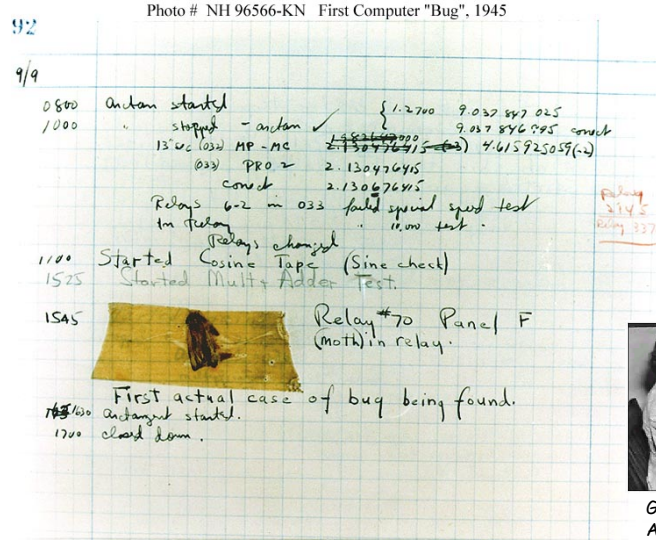 Photo # NH 96566-KN First Computer "Bug", 1945
92
9/9
0800 arctan started
1000 " stopped - arctan ✓ { 1.2700 9.037 847 025
9.037 846 995 correct
13"uc (032) MP - MC 2.130476415 4.615925059(-2)
(033) PRO 2 2.130476415
correct 2.130676415
Relays 6-2 in 033 failed special speed test
In Relay " 10,000 test.
Relay
2145
Relay 337
Relays changed
1100 Started Cosine Tape (Sine check)
1525 Started Mult + Adder Test.
1545 Relay #70 Panel F
(moth) in relay.
First actual case of bug being found.
1630 arctangent started.
1700 closed down.
G
A